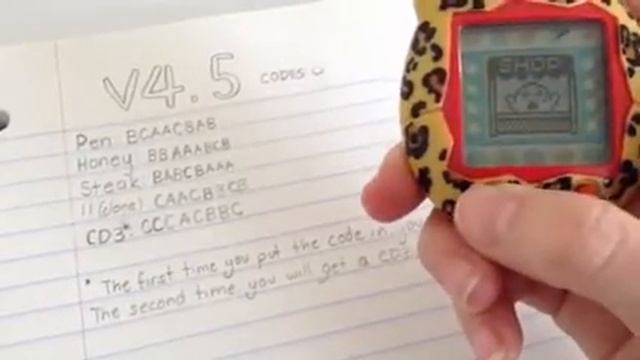 V4.5 CODES
Pen BCAACBAB
Honey BBAAABCB
Steak BABCBAAA
11 (clone)
CD3* CCCACBBC
* The first time you put the code in, you
The second time you will get a CD3.
SHOP